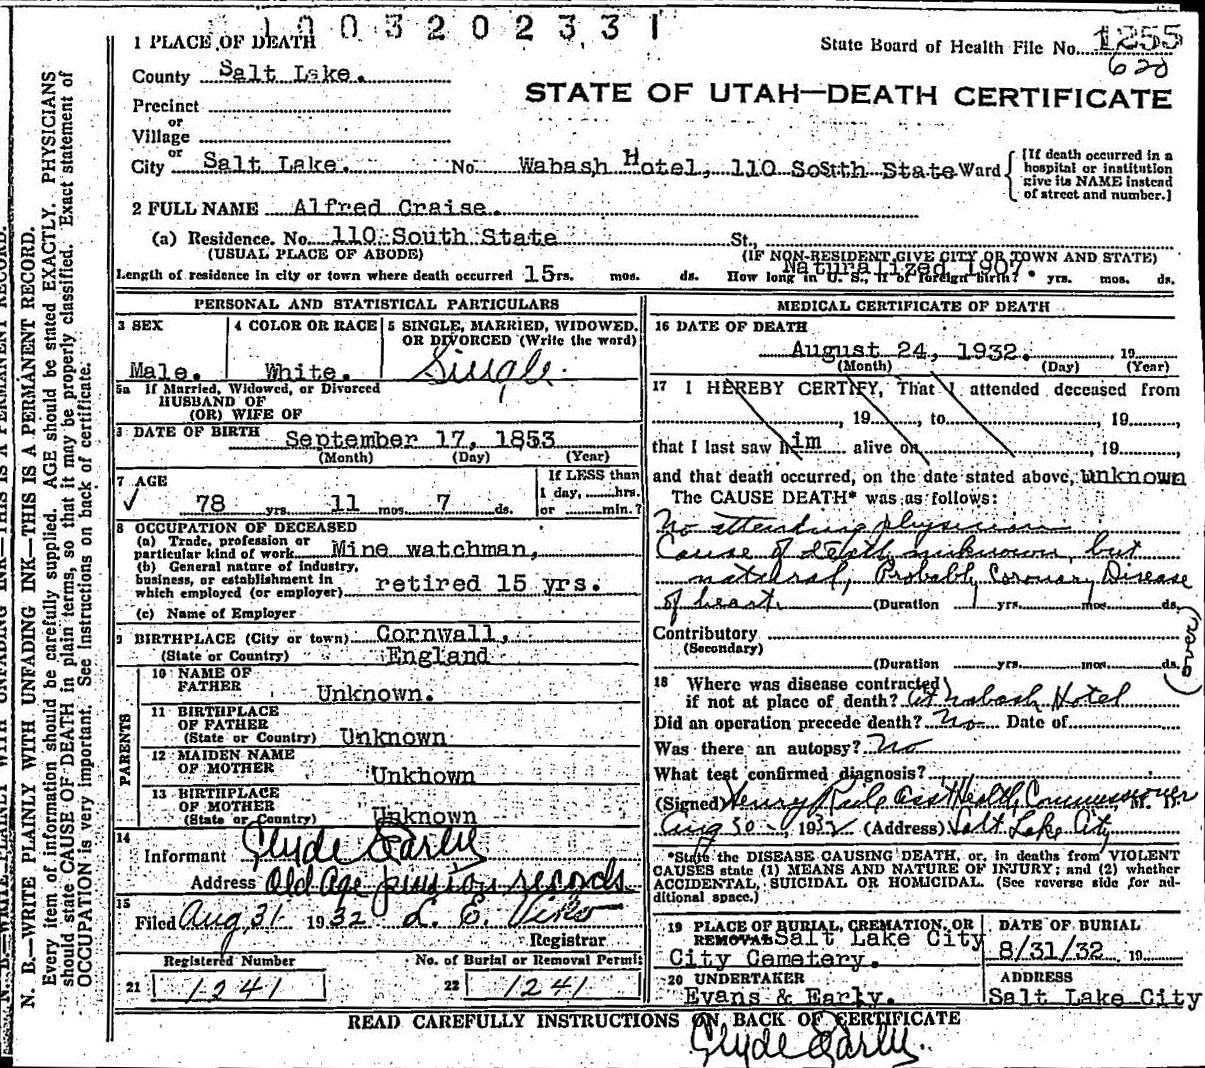 1003202331
1 PLACE OF DEATH
State Board of Health File No. 1255
620
County Salt Lake.
STATE OF UTAH—DEATH CERTIFICATE
Precinct
or
Village
or
City Salt Lake. No. Wabash Hotel, 110 South State Ward
[If death occurred in a
hospital or institution
give its NAME instead
of street and number.]
2 FULL NAME Alfred Craise.
(a) Residence. No. 110 South State St.,
(USUAL PLACE OF ABODE) (IF NON-RESIDENT GIVE CITY OR TOWN AND STATE)
Naturalized 1907.
Length of residence in city or town where death occurred 15rs. mos. ds. How long in U. S., if of foreign birth? yrs. mos. ds.
PERSONAL AND STATISTICAL PARTICULARS
3 SEX
Male.
4 COLOR OR RACE
White.
5 SINGLE, MARRIED, WIDOWED.
OR DIVORCED (Write the word)
Single.
5a If Married, Widowed, or Divorced
HUSBAND OF
(OR) WIFE OF
DATE OF BIRTH September 17, 1853
(Month) (Day) (Year)
7 AGE
78 yrs. 11 mos. 7 ds.
If LESS than
1 day, hrs.
or min.?
8 OCCUPATION OF DECEASED
(a) Trade, profession or
particular kind of work Mine watchman,
(b) General nature of industry,
business, or establishment in
which employed (or employer) retired 15 yrs.
(c) Name of Employer
9 BIRTHPLACE (City or town) Cornwall,
(State or Country) England
PARENTS
10 NAME OF
FATHER Unknown.
11 BIRTHPLACE
OF FATHER
(State or Country) Unknown
12 MAIDEN NAME
OF MOTHER Unkhown
13 BIRTHPLACE
OF MOTHER
(State or Country) Unknown
14
Informant Clyde Early
Address Old Age pension records
15
Filed Aug, 31 1932 L. E. Viko
Registrar
Registered Number
21 1241
No. of Burial or Removal Permit
22 1241
MEDICAL CERTIFICATE OF DEATH
16 DATE OF DEATH
August 24, 1932. 19
(Month) (Day) (Year)
17 I HEREBY CERTIFY, That I attended deceased from
, 19 , to , 19 ,
that I last saw him alive on , 19 ,
and that death occurred, on the date stated above, unknown
The CAUSE DEATH* was as follows:
No attending physician
Cause of death unknown, but
natural, Probably Coronary Disease
of heart. (Duration yrs. mos. ds.
Contributory
(Secondary)
(Duration yrs. mos. ds.
(over)
18 Where was disease contracted
if not at place of death? At Wabash Hotel
Did an operation precede death? No Date of
Was there an autopsy? No
What test confirmed diagnosis?
(Signed) Henry Asst Health Commissioner M. D.
Aug 30 1932 (Address) Salt Lake City
*State the DISEASE CAUSING DEATH, or, in deaths from VIOLENT
CAUSES state (1) MEANS AND NATURE OF INJURY; and (2) whether
ACCIDENTAL, SUICIDAL OR HOMICIDAL. (See reverse side for ad-
ditional space.)
19 PLACE OF BURIAL, CREMATION, OR
REMOVAL Salt Lake City
City Cemetery.
DATE OF BURIAL
8/31/32 19
20 UNDERTAKER
Evans & Early.
ADDRESS
Salt Lake City
READ CAREFULLY INSTRUCTIONS ON BACK OF CERTIFICATE
Clyde Early.
N. B.—WRITE PLAINLY WITH UNFADING INK—THIS IS A PERMANENT RECORD.
Every item of information should be carefully supplied. AGE should be stated EXACTLY. PHYSICIANS
should state CAUSE OF DEATH in plain terms, so that it may be properly classified. Exact statement of
OCCUPATION is very important. See instructions on back of certificate.